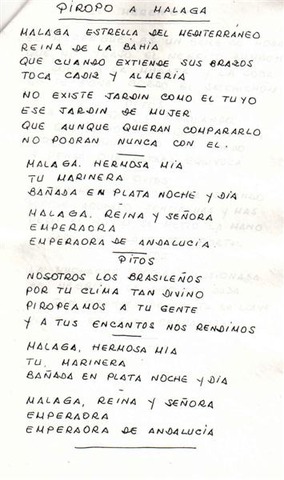 PIROPO A MALAGA
MALAGA ESTRELLA DEL MEDITERRÁNEO
REINA DE LA BAHIA
QUE CUANDO EXTIENDE SUS BRAZOS
TOCA CADIZ Y ALMERIA
NO EXISTE JARDIN COMO EL TUYO
ESE JARDIN DE MUJER
QUE AUNQUE QUIERAN COMPARARLO
NO PODRAN NUNCA CON EL.
MALAGA, HERMOSA MIA
TU MARINERA
BAÑADA EN PLATA NOCHE Y DIA
MALAGA, REINA Y SEÑORA
EMPERAORA
EMPERAORA DE ANDALUCIA.
PITOS
NOSOTROS LOS BRASILEÑOS
POR TU CLIMA TAN DIVINO
PIROPEAMOS A TU GENTE
Y A TUS ENCANTOS NOS RENDIMOS
MALAGA, HERMOSA MIA
TU, MARINERA
BAÑADA EN PLATA NOCHE Y DIA
MALAGA, REINA Y SEÑORA
EMPERAORA
EMPERAORA DE ANDALUCIA